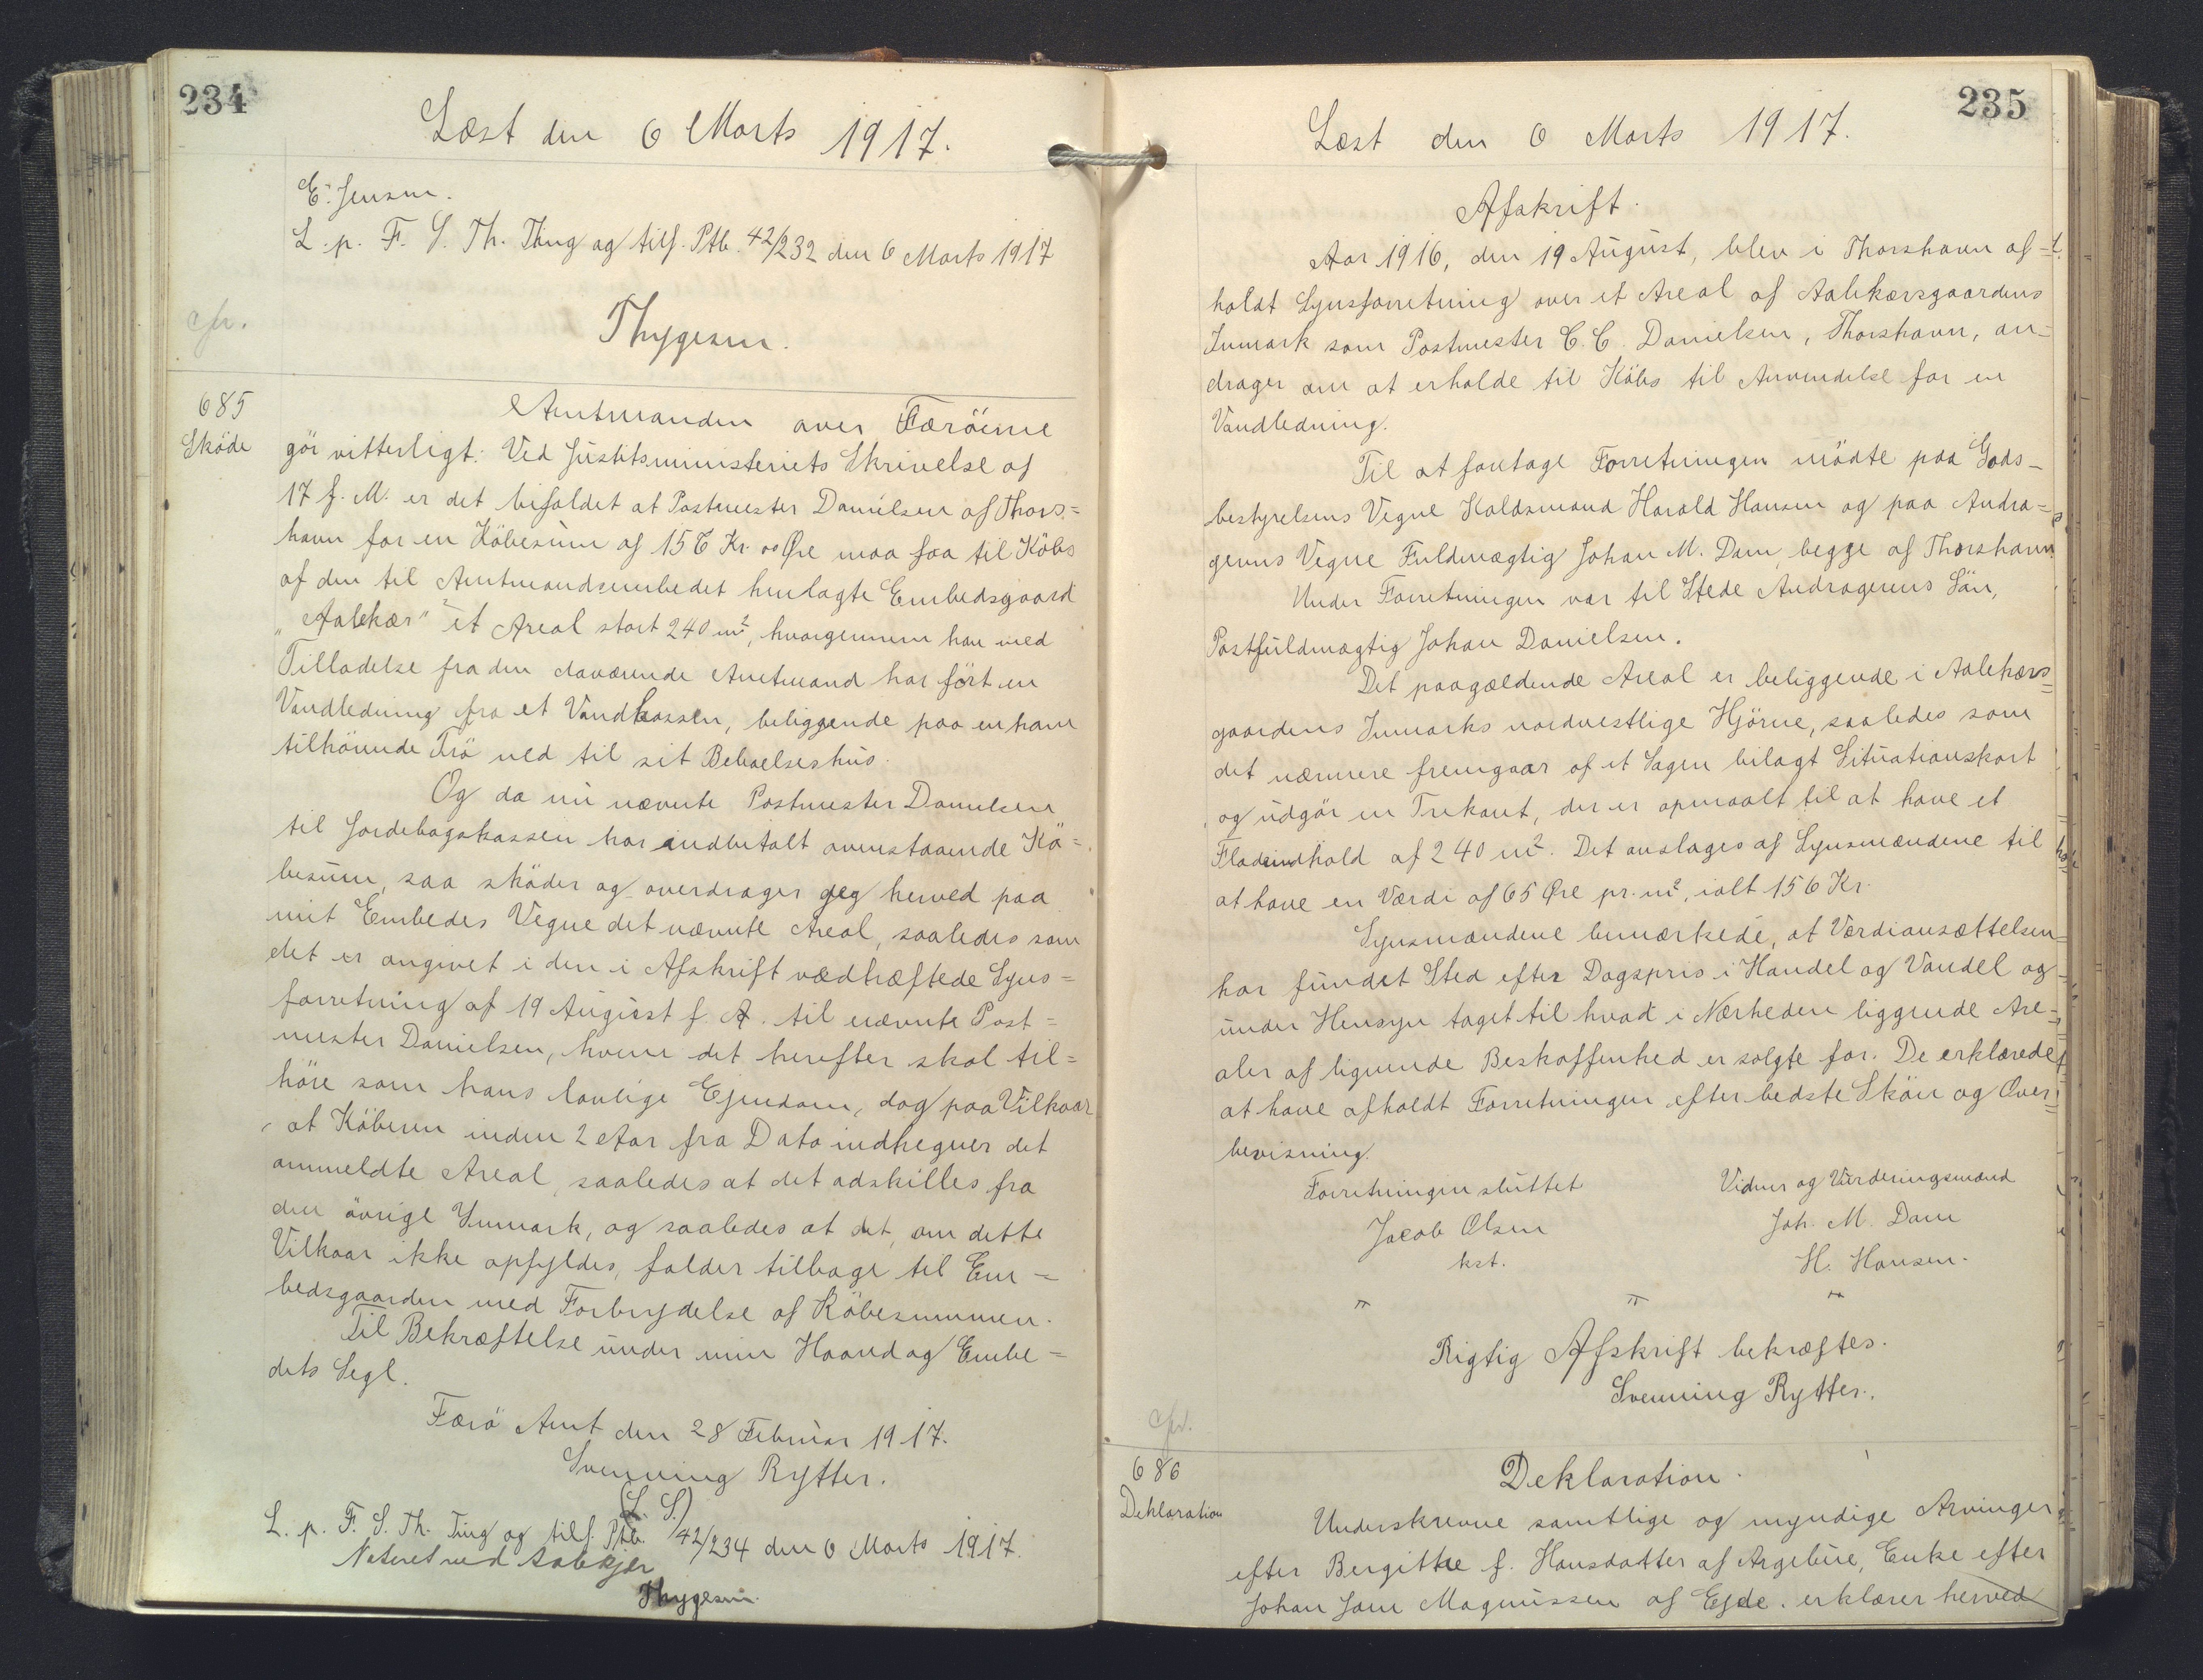 234
Læst den 6 Marts 1917.
E. Jensen.
L. p. F. S. Th. Ting og tilf. Ptb. 42/232 den 6 Marts 1917
cfr.
Thygesen.
685
Sköde
Amtmanden over Færöerne
gör vitterligt: Ved Justitsministeriets Skrivelse af
17 f. M. er det bifaldet at Postmester Danielsen af Thors=
havn for en Köbesum af 156 Kr. 00 Øre maa faa til Köbs
af den til Amtmandsembedet henlagte Embedsgaard
"Aalekær" et Areal stort 240 m², hvorigennem han med
Tilladelse fra den daværende Amtmand har fört en
Vandledning fra et Vandbassen, beliggende paa en ham
tilhörende Trö ned til sit Beboelseshus.
Og da nu nævnte Postmester Danielsen
til Jordebogskassen har indbetalt ovenstaaende Kö=
besum, saa sköder og overdrager jeg herved paa
mit Embedes Vegne det nævnte Areal, saaledes som
det er angivet i den i Afskrift vedhæftede Syns=
forretning af 19 August f. A. til nævnte Post=
mester Danielsen, hvem det herefter skal til=
höre som hans lovlige Ejendom, dog paa Vilkaar
at Köberen inden 2 Aar fra Dato indhegner det
ommeldte Areal, saaledes at det adskilles fra
den övrige Inmark, og saaledes at det, om dette
Vilkaar ikke opfyldes, falder tilbage til Em=
bedsgaarden med Forbrydelse af Köbesummen.
Til Bekræftelse under min Haand og Embe=
dets Segl.
Færö Amt den 28 Februar 1917.
Svenning Rytter.
(L. S.)
L. p. F. S. Th. Ting og tilf. Ptb. 42/234 den 6 Marts 1917.
Noteret ved Aalekjær
Thygesen.
235
Læst den 6 Marts 1917.
Afskrift.
Aar 1916, den 19 August, blev i Thorshavn af=
holdt Synsforretning over et Areal af Aalekærsgaardens
Inmark som Postmester C. C. Danielsen, Thorshavn, an=
drager om at erholde til Köbs til Anvendelse for en
Vandledning.
Til at foretage Forretningen mödte paa Gods=
bestyrelsens Vegne Koldsmand Harald Hansen og paa Andra=
gerens Vegne Fuldmægtig Johan M. Dam, begge af Thorshavn
Under Forretningen var til Stede Andragerens Sön,
Postfuldmægtig Johan Danielsen.
Det paagældende Areal er beliggende i Aalekærs=
gaardens Inmarks nordvestlige Hjörne, saaledes som
det nærmere fremgaar af et Sagen bilagt Situationskort
og udgör en Trekant, der er opmaalt til at have et
Fladeindhold af 240 m². Det anslages af Synsmændene til
at have en Værdi af 65 Øre pr. m², ialt 156 Kr.
Synsmændene bemærkede, at Værdiansættelsen
har fundet Sted efter Dagspris i Handel og Vandel og
under Hensyn taget til hvad i Nærheden liggende Are=
aler af lignende Beskaffenhed er solgte for. De erklærede
at have afholdt Forretningen efter bedste Skön og Over=
bevisning.
Forretningen sluttet
Vidner og Vurderingsmænd
Jacob Olsen
Joh. M. Dam
kst.
H. Hansen.
Rigtig Afskrift bekræftes.
Svenning Rytter.
cfr.
686
Deklaration
Deklaration.
Underskrevne samtlige og myndige Arvinger
efter Bergitte f. Hansdatter af Argebure, Enke efter
Johan Jom Magnussen af Ejde, erklærer herved